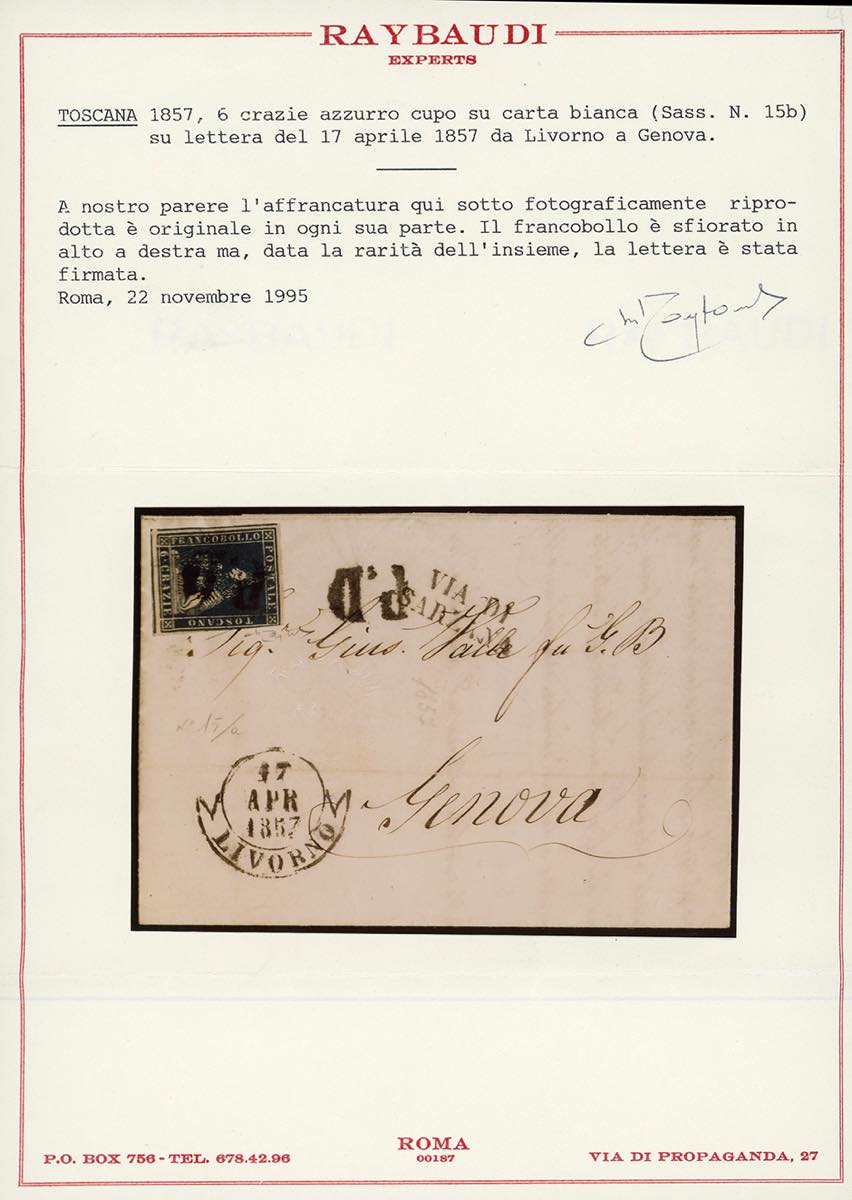 RAYBAUDI
EXPERTS
TOSCANA 1857, 6 crazie azzurro cupo su carta bianca (Sass. N. 15b)
su lettera del 17 aprile 1857 da Livorno a Genova.
A nostro parere l'affrancatura qui sotto fotograficamente ripro-
dotta è originale in ogni sua parte. Il francobollo è sfiorato in
alto a destra ma, data la rarità dell'insieme, la lettera è stata
firmata.
Roma, 22 novembre 1995
FRANCOBOLLO
POSTALE
TOSCANO
6·CRAZIE
P.D.
VIA DI
SARZANA
Sig. Gius. Valle fu G. B.
1857
Genova
17
APR
1857
LIVORNO
ROMA
00187
P.O. BOX 756 - TEL. 678.42.96
VIA DI PROPAGANDA, 27